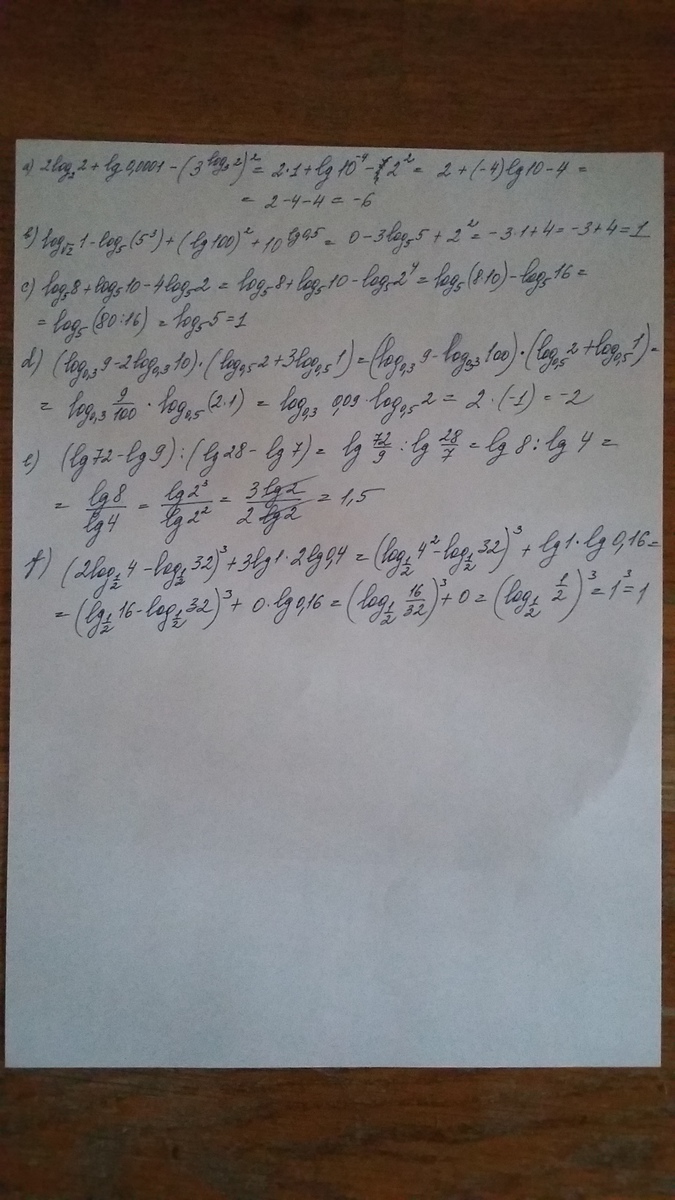 a) 2log₂2 + lg0,0001 - (3^(log₃2))² = 2·1 + lg10⁻⁴ - 2² = 2 + (-4)lg10 - 4 =
= 2 - 4 - 4 = -6
b) log_√2 1 - log₅(5³) + (lg100)² + 10^(lg0,5) = 0 - 3log₅5 + 2² = -3·1 + 4 = -3 + 4 = 1
c) log₅8 + log₅10 - 4log₅2 = log₅8 + log₅10 - log₅2⁴ = log₅(8·10) - log₅16 =
= log₅(80:16) = log₅5 = 1
d) (log₀,₃9 - 2log₀,₃10)·(log₀,₅2 + 3log₀,₅1) = (log₀,₃9 - log₀,₃100)·(log₀,₅2 + log₀,₅1) =
= log₀,₃ 9/100 · log₀,₅(2·1) = log₀,₃ 0,09 · log₀,₅2 = 2·(-1) = -2
e) (lg72 - lg9) : (lg28 - lg7) = lg 72/9 : lg 28/7 = lg8 : lg4 =
= lg8/lg4 = lg2³/lg2² = 3lg2/2lg2 = 1,5
f) (2log_1/2 4 - log_1/2 32)³ + 3lg1·2lg0,4 = (log_1/2 4² - log_1/2 32)³ + lg1·lg0,16 =
= (lg_1/2 16 - log_1/2 32)³ + 0·lg0,16 = (log_1/2 16/32)³ + 0 = (log_1/2 1/2)³ = 1³ = 1